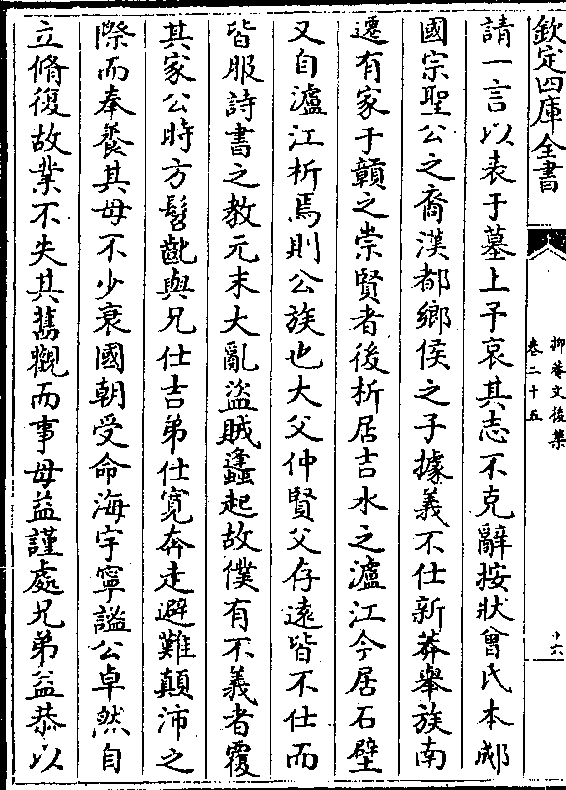 欽定四庫全書
抑菴文後集
卷二十五
十六
請一言以表于墓上予哀其志不克辭按狀曾氏本郕
國宗聖公之裔漢都鄉侯之子據義不仕新莽舉族南
遷有家于贛之崇賢者後析居吉水之瀘江今居石壁
又自瀘江析焉則公族也大父仲賢父存遠皆不仕而
皆服詩書之教元末大亂盜賊蠭起故僕有不義者覆
其家公時方髫齓與兄仕吉弟仕寛奔走避難顛沛之
際而奉養其母不少衰國朝受命海宇寧謐公卓然自
立脩復故業不失其舊觀而事母益謹處兄弟益恭以